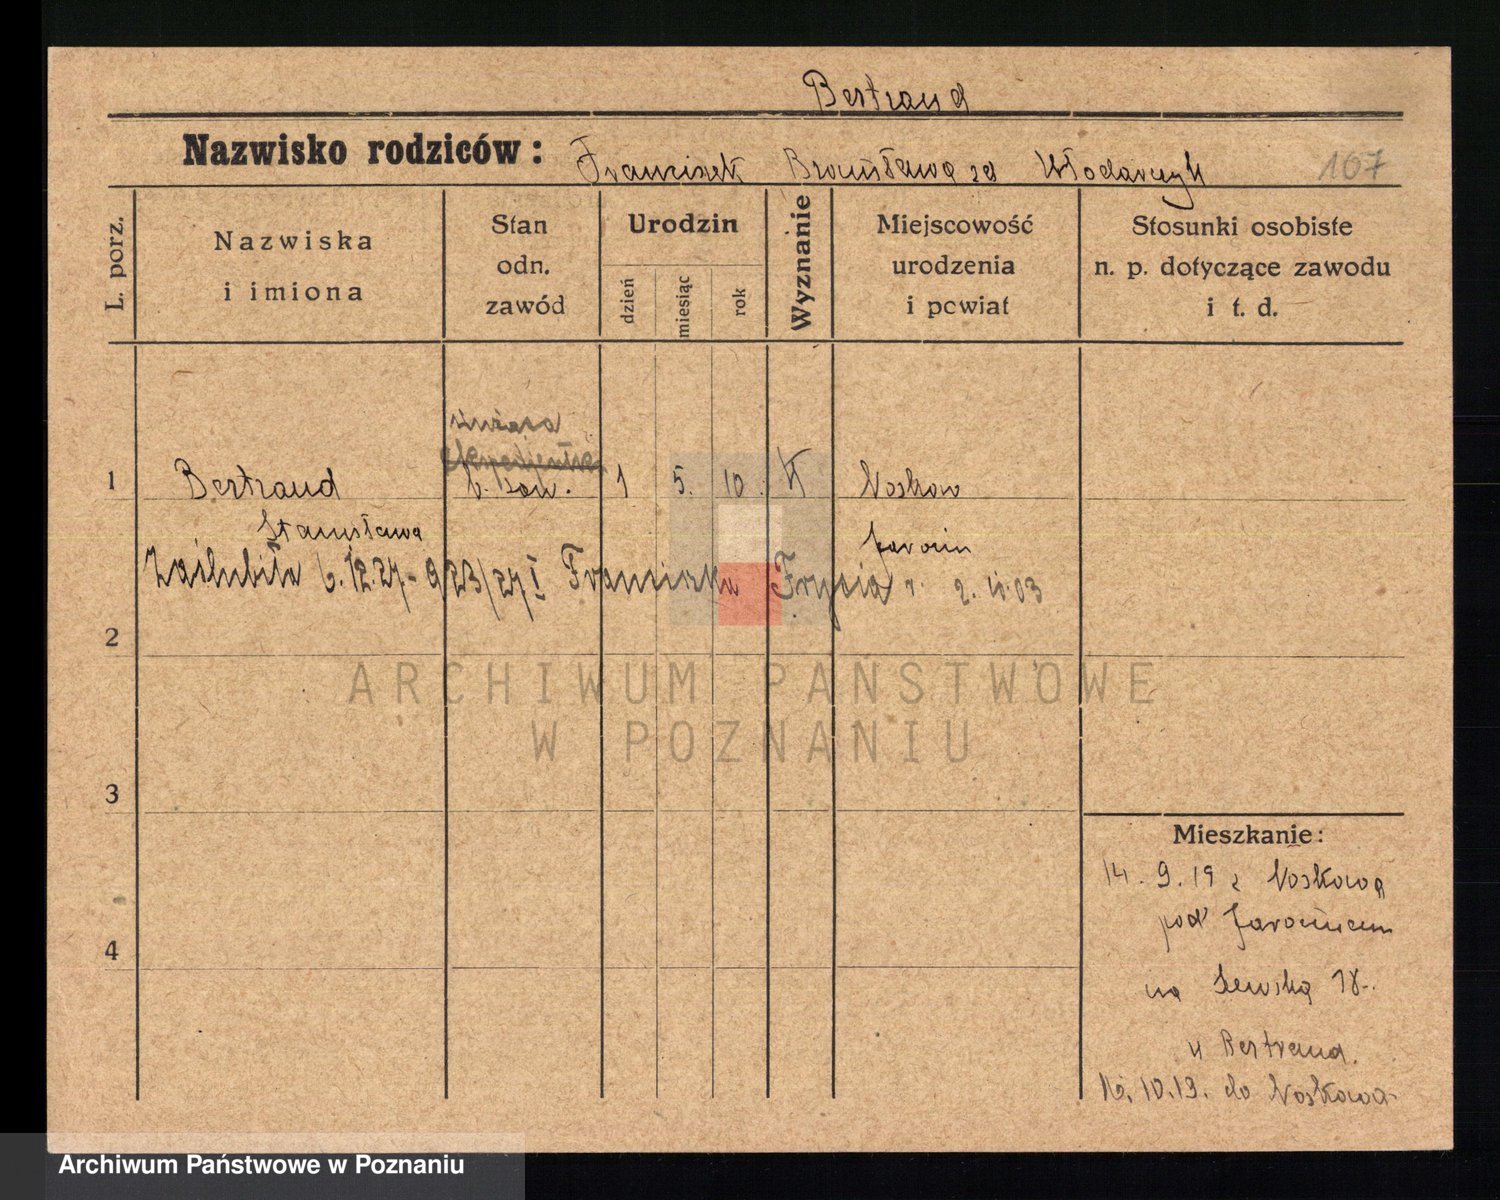 Bertrand
Nazwisko rodziców: Franciszek Bronisława zd Włodarczyk 107
L. porz.
Nazwiska
i imiona
Stan
odn.
zawód
Urodzin
dzień
miesiąc
rok
Wyznanie
Miejscowość
urodzenia
i powiat
Stosunki osobiste
n. p. dotyczące zawodu
i t. d.
służąca
ekspedjentka
1 Bertrand b. zaw. 1 5. 10. K Noskow
Stanisława Jarocin
Zaślubiła 6.12.27 - 923/27 I Franciszka Frysia 2. 11. 03
2
3
4
Mieszkanie:
14. 9. 19 z Noskowa
pod Jarocinem
na 18.
u Bertrand.
10. 19. do Noskowa
ARCHIWUM PAŃSTWOWE
W POZNANIU
Archiwum Państwowe w Poznaniu